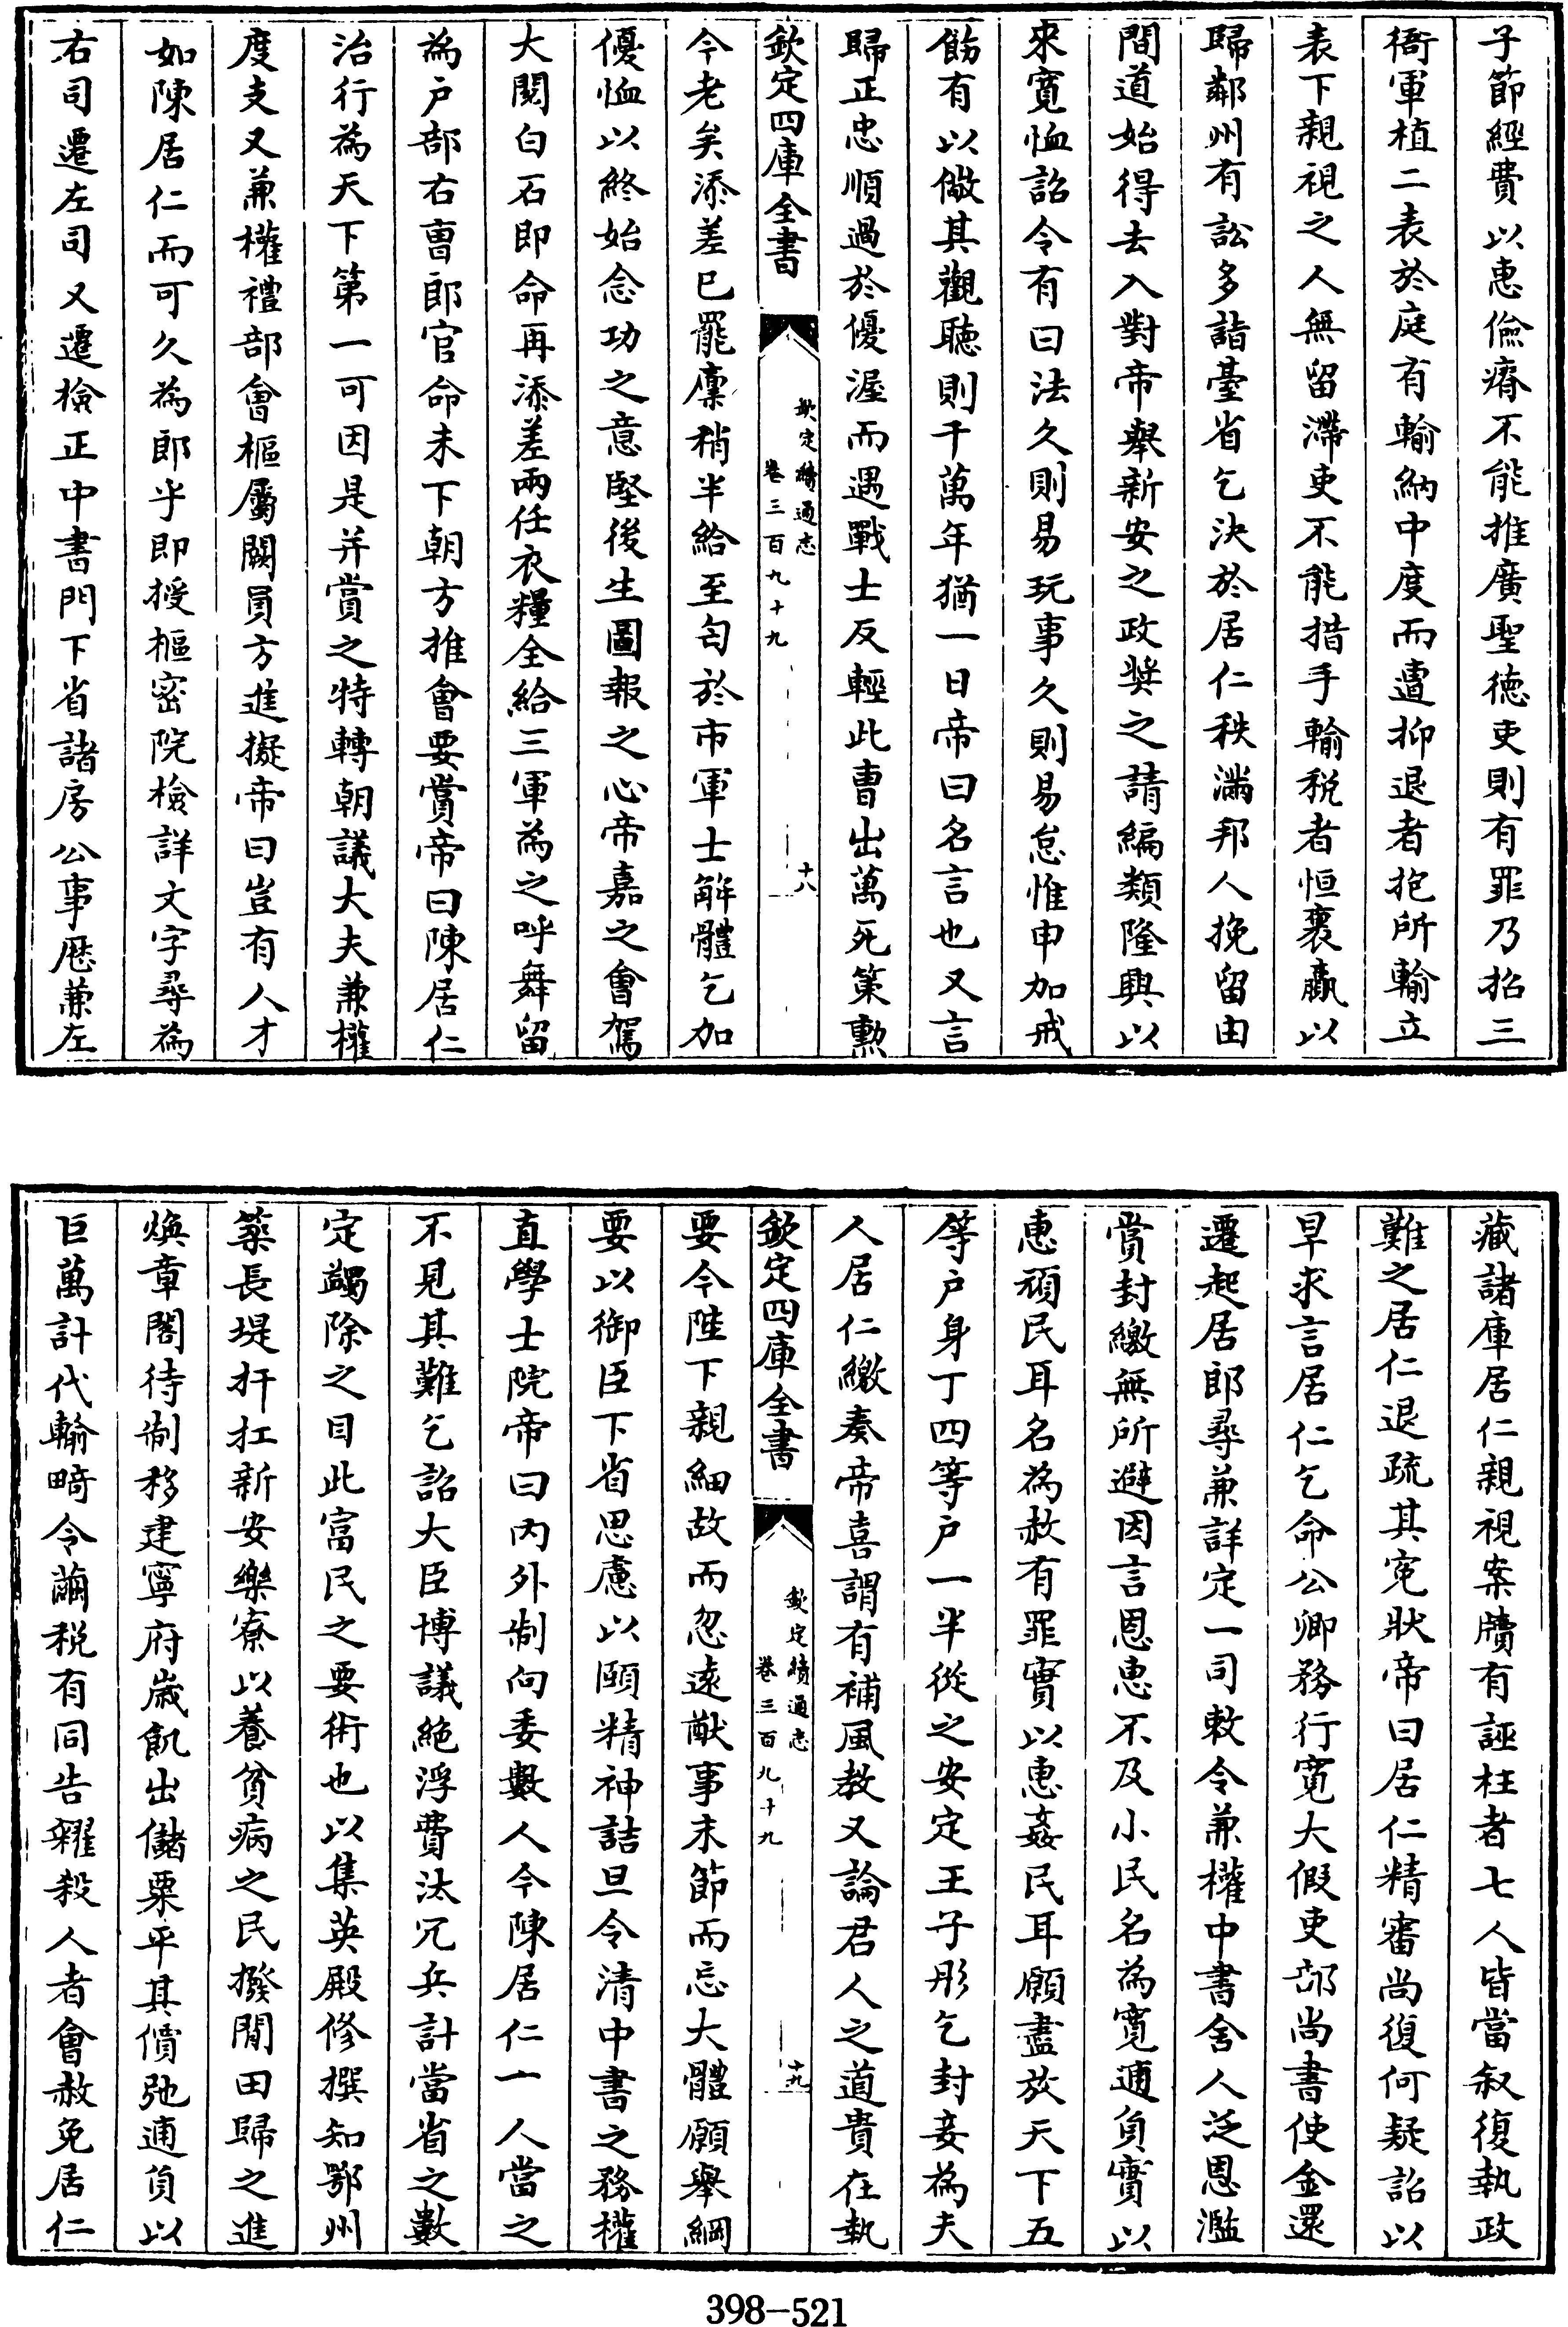 子節經費以惠儉瘠不能推廣聖徳吏則有罪乃招三
衙軍植二表於庭有輸納中度而遭抑退者抱所輸立
表下親視之人無留滯吏不能措手輸税者恒裹贏以
歸鄰州有訟多詣臺省乞決於居仁秩滿邦人挽留由
間道始得去入對帝舉新安之政奨之請編類隆興以
來寛恤詔令有曰法久則易玩事久則易怠惟申加戒
飭有以儆其觀聽則千萬年猶一日帝曰名言也又言
歸正忠順過於優渥而遇戰士反輕此曹出萬死策勲
欽定四庫全書
欽定續通志
卷三百九十九
十八
今老矣添差已罷廩稍半給至匄於市軍士解體乞加
優恤以終始念功之意堅後生圖報之心帝嘉之會駕
大閲白石即命再添差兩任衣糧全給三軍為之呼舞留
為户部右曹郎官命未下朝方推會要賞帝曰陳居仁
治行為天下第一可因是并賞之特轉朝議大夫兼權
度支又兼權禮部會樞屬闕員方進擬帝曰豈有人才
如陳居仁而可久為郎乎即授樞密院檢詳文字尋為
右司遷左司又遷檢正中書門下省諸房公事厯兼左
藏諸庫居仁親視案牘有誣枉者七人皆當叙復執政
難之居仁退疏其寃狀帝曰居仁精審尚復何疑詔以
早求言居仁乞命公卿務行寛大假吏部尚書使金還
遷起居郎尋兼詳定一司敕令兼權中書舍人泛恩濫
賞封繳無所避因言恩惠不及小民名為寛逋負實以
惠頑民耳名為赦有罪實以惠姦民耳願盡放天下五
等户身丁四等户一半從之安定王子肜乞封妾為夫
人居仁繳奏帝喜謂有補風教又論君人之道貴在執
欽定四庫全書
欽定續通志
卷三百九十九
十九
要今陛下親細故而忽遠猷事末節而忘大體願舉綱
要以御臣下省思慮以頤精神詰旦令清中書之務權
直學士院帝曰内外制向委數人今陳居仁一人當之
不見其難乞詔大臣博議絶浮費汰冗兵計當省之數
定蠲除之目此富民之要術也以集英殿修撰知鄂州
築長堤扞江新安樂寮以養貧病之民撥閒田歸之進
煥章閣待制移建寧府歲飢出儲粟平其價弛逋負以
巨萬計代輸畸令繭税有同告糴殺人者會赦免居仁
398-521